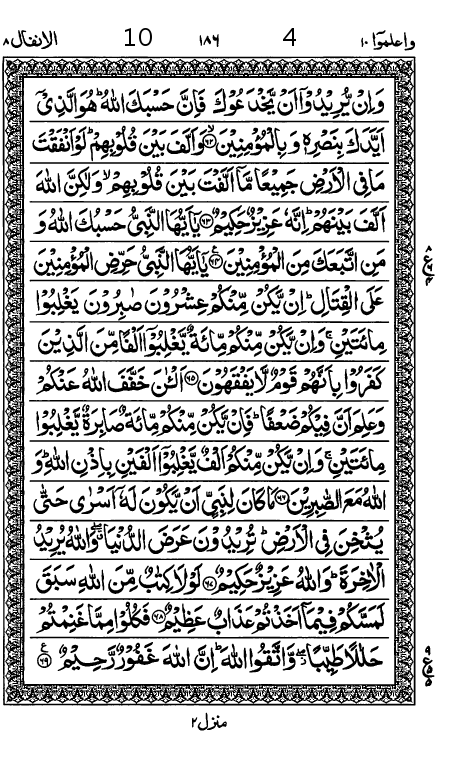 واعلموا ١٠ 4 ١٨٦ 10 الانفال ٨
وَاِنْ يُّرِيْدُوْۤا اَنْ يَّخْدَعُوْكَ فَاِنَّ حَسْبَكَ اللّٰهُ ؕ هُوَ الَّذِيْۤ
اَيَّدَكَ بِنَصْرِهٖ وَ بِالْمُؤْمِنِيْنَ ۙ﴿۶۲﴾ وَاَلَّفَ بَيْنَ قُلُوْبِهِمْ ؕ لَوْ اَنْفَقْتَ
مَا فِي الْاَرْضِ جَمِيْعًا مَّاۤ اَلَّفْتَ بَيْنَ قُلُوْبِهِمْ ۙ وَلٰكِنَّ اللّٰهَ
اَلَّفَ بَيْنَهُمْ ؕ اِنَّهٗ عَزِيْزٌ حَكِيْمٌ ﴿۶۳﴾ يٰۤاَيُّهَا النَّبِيُّ حَسْبُكَ اللّٰهُ وَ
مَنِ اتَّبَعَكَ مِنَ الْمُؤْمِنِيْنَ ﴿۶۴﴾ يٰۤاَيُّهَا النَّبِيُّ حَرِّضِ الْمُؤْمِنِيْنَ
عَلَى الْقِتَالِ ؕ اِنْ يَّكُنْ مِّنْكُمْ عِشْرُوْنَ صٰبِرُوْنَ يَغْلِبُوْا
مِائَتَيْنِ ۚ وَاِنْ يَّكُنْ مِّنْكُمْ مِّائَةٌ يَّغْلِبُوْۤا اَلْفًا مِّنَ الَّذِيْنَ
كَفَرُوْا بِاَنَّهُمْ قَوْمٌ لَّا يَفْقَهُوْنَ ﴿۶۵﴾ اَلْـٰٔنَ خَفَّفَ اللّٰهُ عَنْكُمْ
وَعَلِمَ اَنَّ فِيْكُمْ ضَعْفًا ؕ فَاِنْ يَّكُنْ مِّنْكُمْ مِّائَةٌ صَابِرَةٌ يَّغْلِبُوْا
مِائَتَيْنِ ۚ وَاِنْ يَّكُنْ مِّنْكُمْ اَلْفٌ يَّغْلِبُوْۤا اَلْفَيْنِ بِاِذْنِ اللّٰهِ ؕ وَ
اللّٰهُ مَعَ الصّٰبِرِيْنَ ﴿۶۶﴾ مَا كَانَ لِنَبِيٍّ اَنْ يَّكُوْنَ لَهٗۤ اَسْرٰى حَتّٰى
يُثْخِنَ فِي الْاَرْضِ ؕ تُرِيْدُوْنَ عَرَضَ الدُّنْيَا ۖ وَاللّٰهُ يُرِيْدُ
الْاٰخِرَةَ ؕ وَاللّٰهُ عَزِيْزٌ حَكِيْمٌ ﴿۶۷﴾ لَوْلَا كِتٰبٌ مِّنَ اللّٰهِ سَبَقَ
لَمَسَّكُمْ فِيْمَاۤ اَخَذْتُمْ عَذَابٌ عَظِيْمٌ ﴿۶۸﴾ فَكُلُوْا مِمَّا غَنِمْتُمْ
حَلٰلًا طَيِّبًا ۖ وَّاتَّقُوا اللّٰهَ ؕ اِنَّ اللّٰهَ غَفُوْرٌ رَّحِيْمٌ ﴿۶۹﴾
منزل ٢